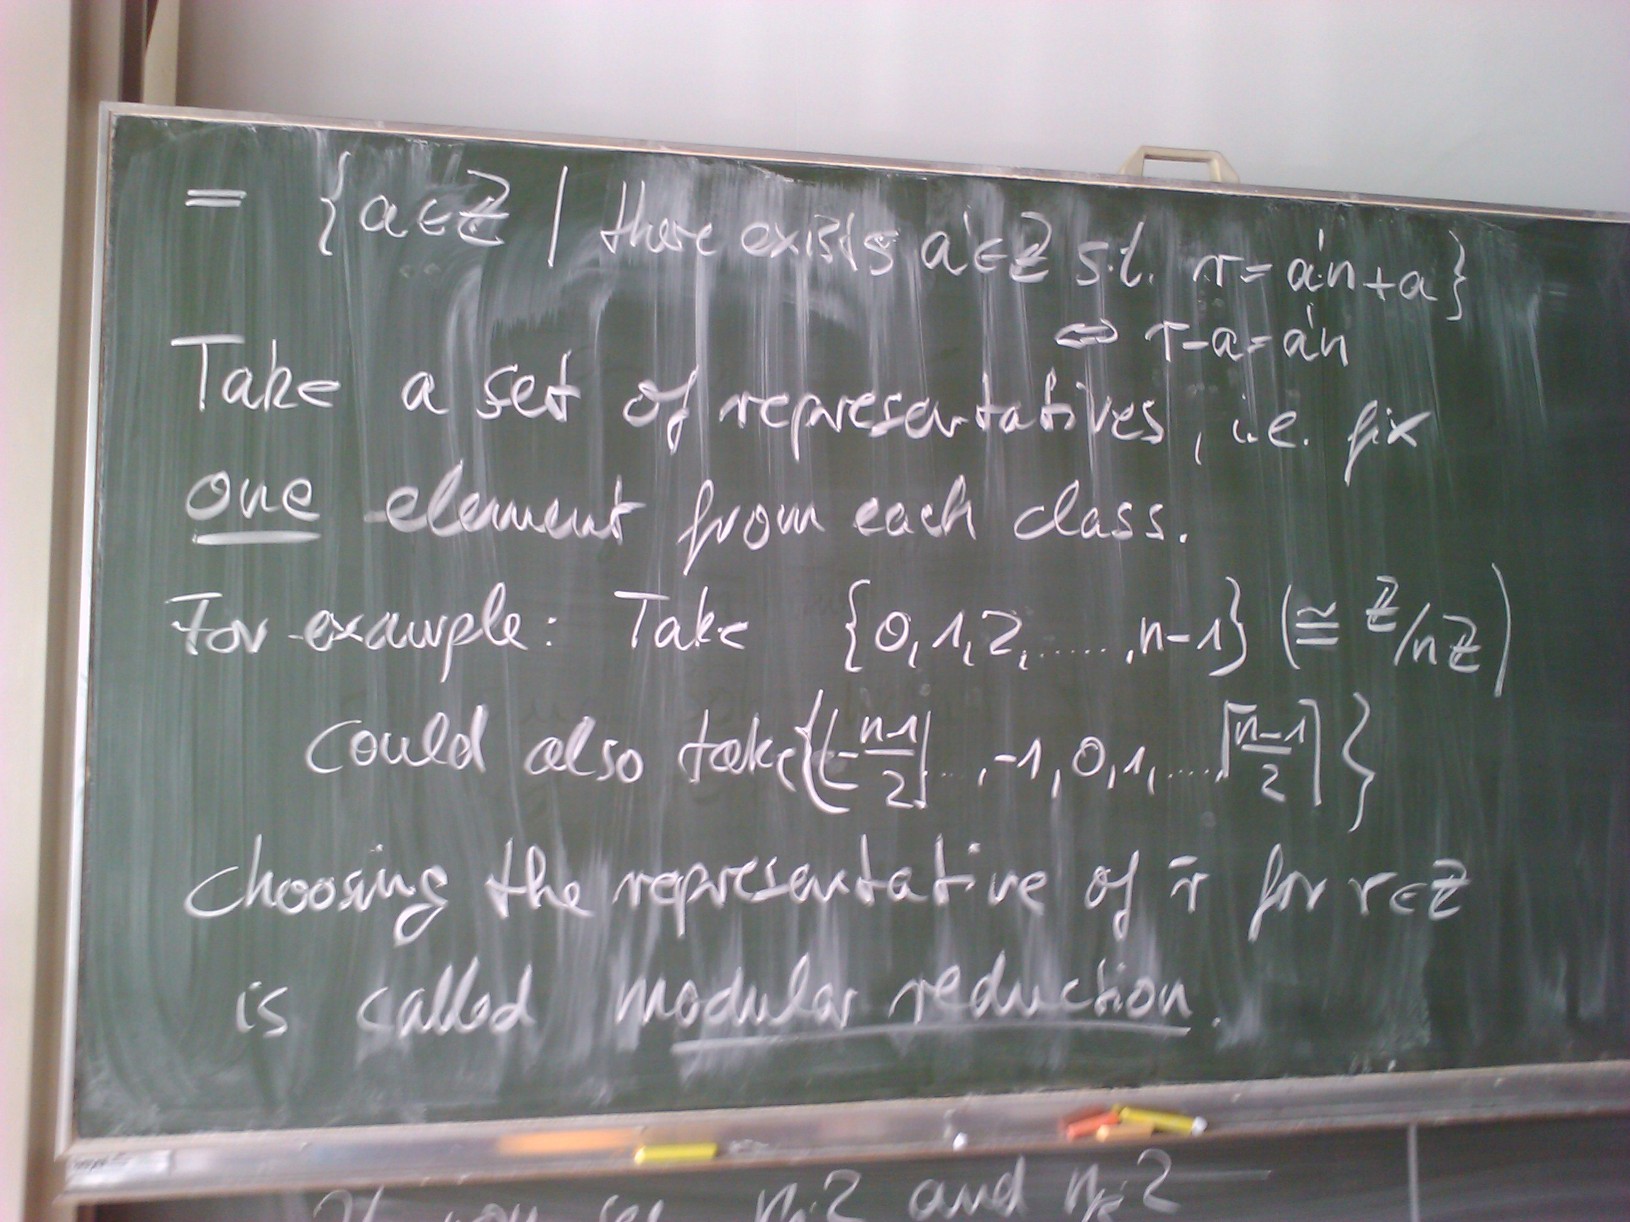 = {a∈ℤ | there exists a'∈ℤ s.t. r = a'n+a}
⇔ r-a=a'n
Take a set of representatives, i.e. fix
one element from each class.
For example: Take {0,1,2,.....,n-1} (≅ ℤ/nℤ)
could also take {⌊-n-1/2⌋...,-1,0,1,...,⌈n-1/2⌉}
choosing the representative of r̄ for r∈ℤ
is called modular reduction.
and